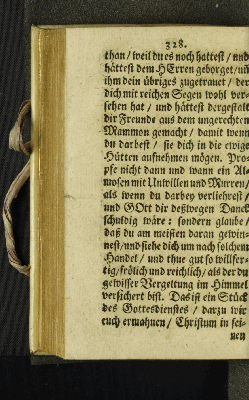 328.
than / weil du es noch hattest / und
hättest dem HErren geborget / uñ
ihm dein übriges zugetrauet / der
dich mit reichen Segen wohl ver-
sehen hat / und hättest dergestalt
dir Freunde aus dem ungerechten
Mammon gemacht / damit wenn
du darbest / sie dich in die ewige
Hütten aufnehmen mögen. Pro-
pfe nicht dann und wann ein Al-
mosen mit Unwillen und Murren /
als wenn du darbey verliehrest /
und GOtt dir deßwegen Danck
schuldig wäre: sondern glaube /
daß du am meisten daran gewin-
nest / und siehe dich um nach solchem
Handel / und thue gut so willfer-
tig / frölich und reichlich / als der du
gewisser Vergeltung im Himmel
versichert bist. Das ist ein Stück
des Gottesdienstes / darzu wir
euch ermahnen / Christum in sei-
nen